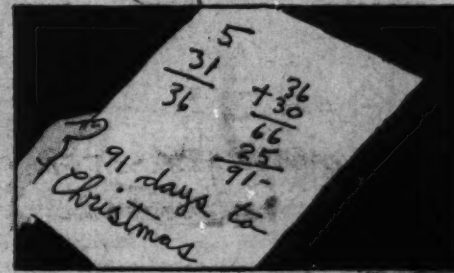 5
31
36
36
+30
66
25
91-
91 days to
Christmas